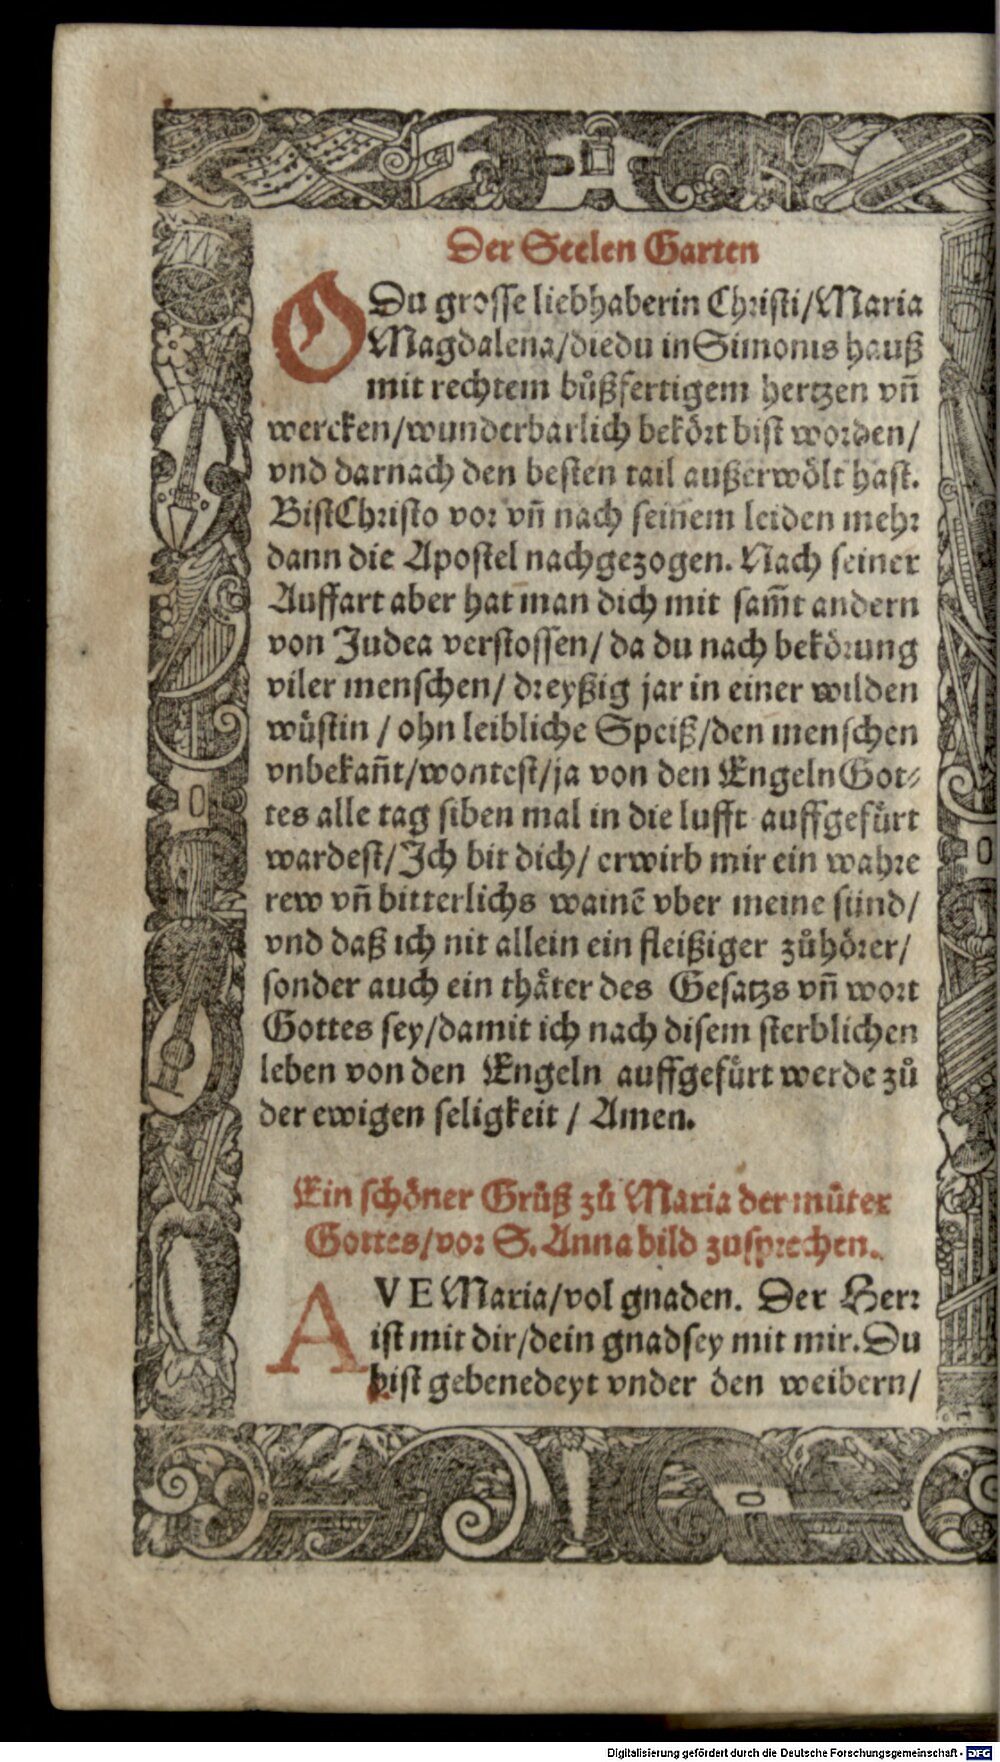 Der Seelen Garten
O Du grosse liebhaberin Christi/Maria
Magdalena/die du in Simonis hauß
mit rechtem bůßfertigem hertzen vñ
wercken/wunderbarlich bekört bist worden/
vnd darnach den besten tail außerwölt hast.
Bist Christo vor vñ nach seinem leiden mehr
dann die Apostel nachgezogen. Nach seiner
Auffart aber hat man dich mit sam̃t andern
von Judea verstossen/ da du nach bekörung
viler menschen/ dreyßig jar in einer wilden
wůstin / ohn leibliche Speiß/den menschen
vnbekañt/wontest/ja von den Engeln Got⸗
tes alle tag siben mal in die lufft auffgefůrt
wardest/Ich bit dich/ erwirb mir ein wahre
rew vñ bitterlichs wainẽ vber meine sünd/
vnd daß ich nit allein ein fleißiger zůhörer/
sonder auch ein thäter des Gesatzs vñ wort
Gottes sey/damit ich nach disem sterblichen
leben von den Engeln auffgefůrt werde zů
der ewigen seligkeit / Amen.
Ein schöner Grůß zů Maria der můter
Gottes/vor S. Anna bild zusprechen.
AVE Maria/vol gnaden. Der Herr
ist mit dir/dein gnad sey mit mir. Du
bist gebenedeyt vnder den weibern/
Digitalisierung gefördert durch die Deutsche Forschungsgemeinschaft - DFG